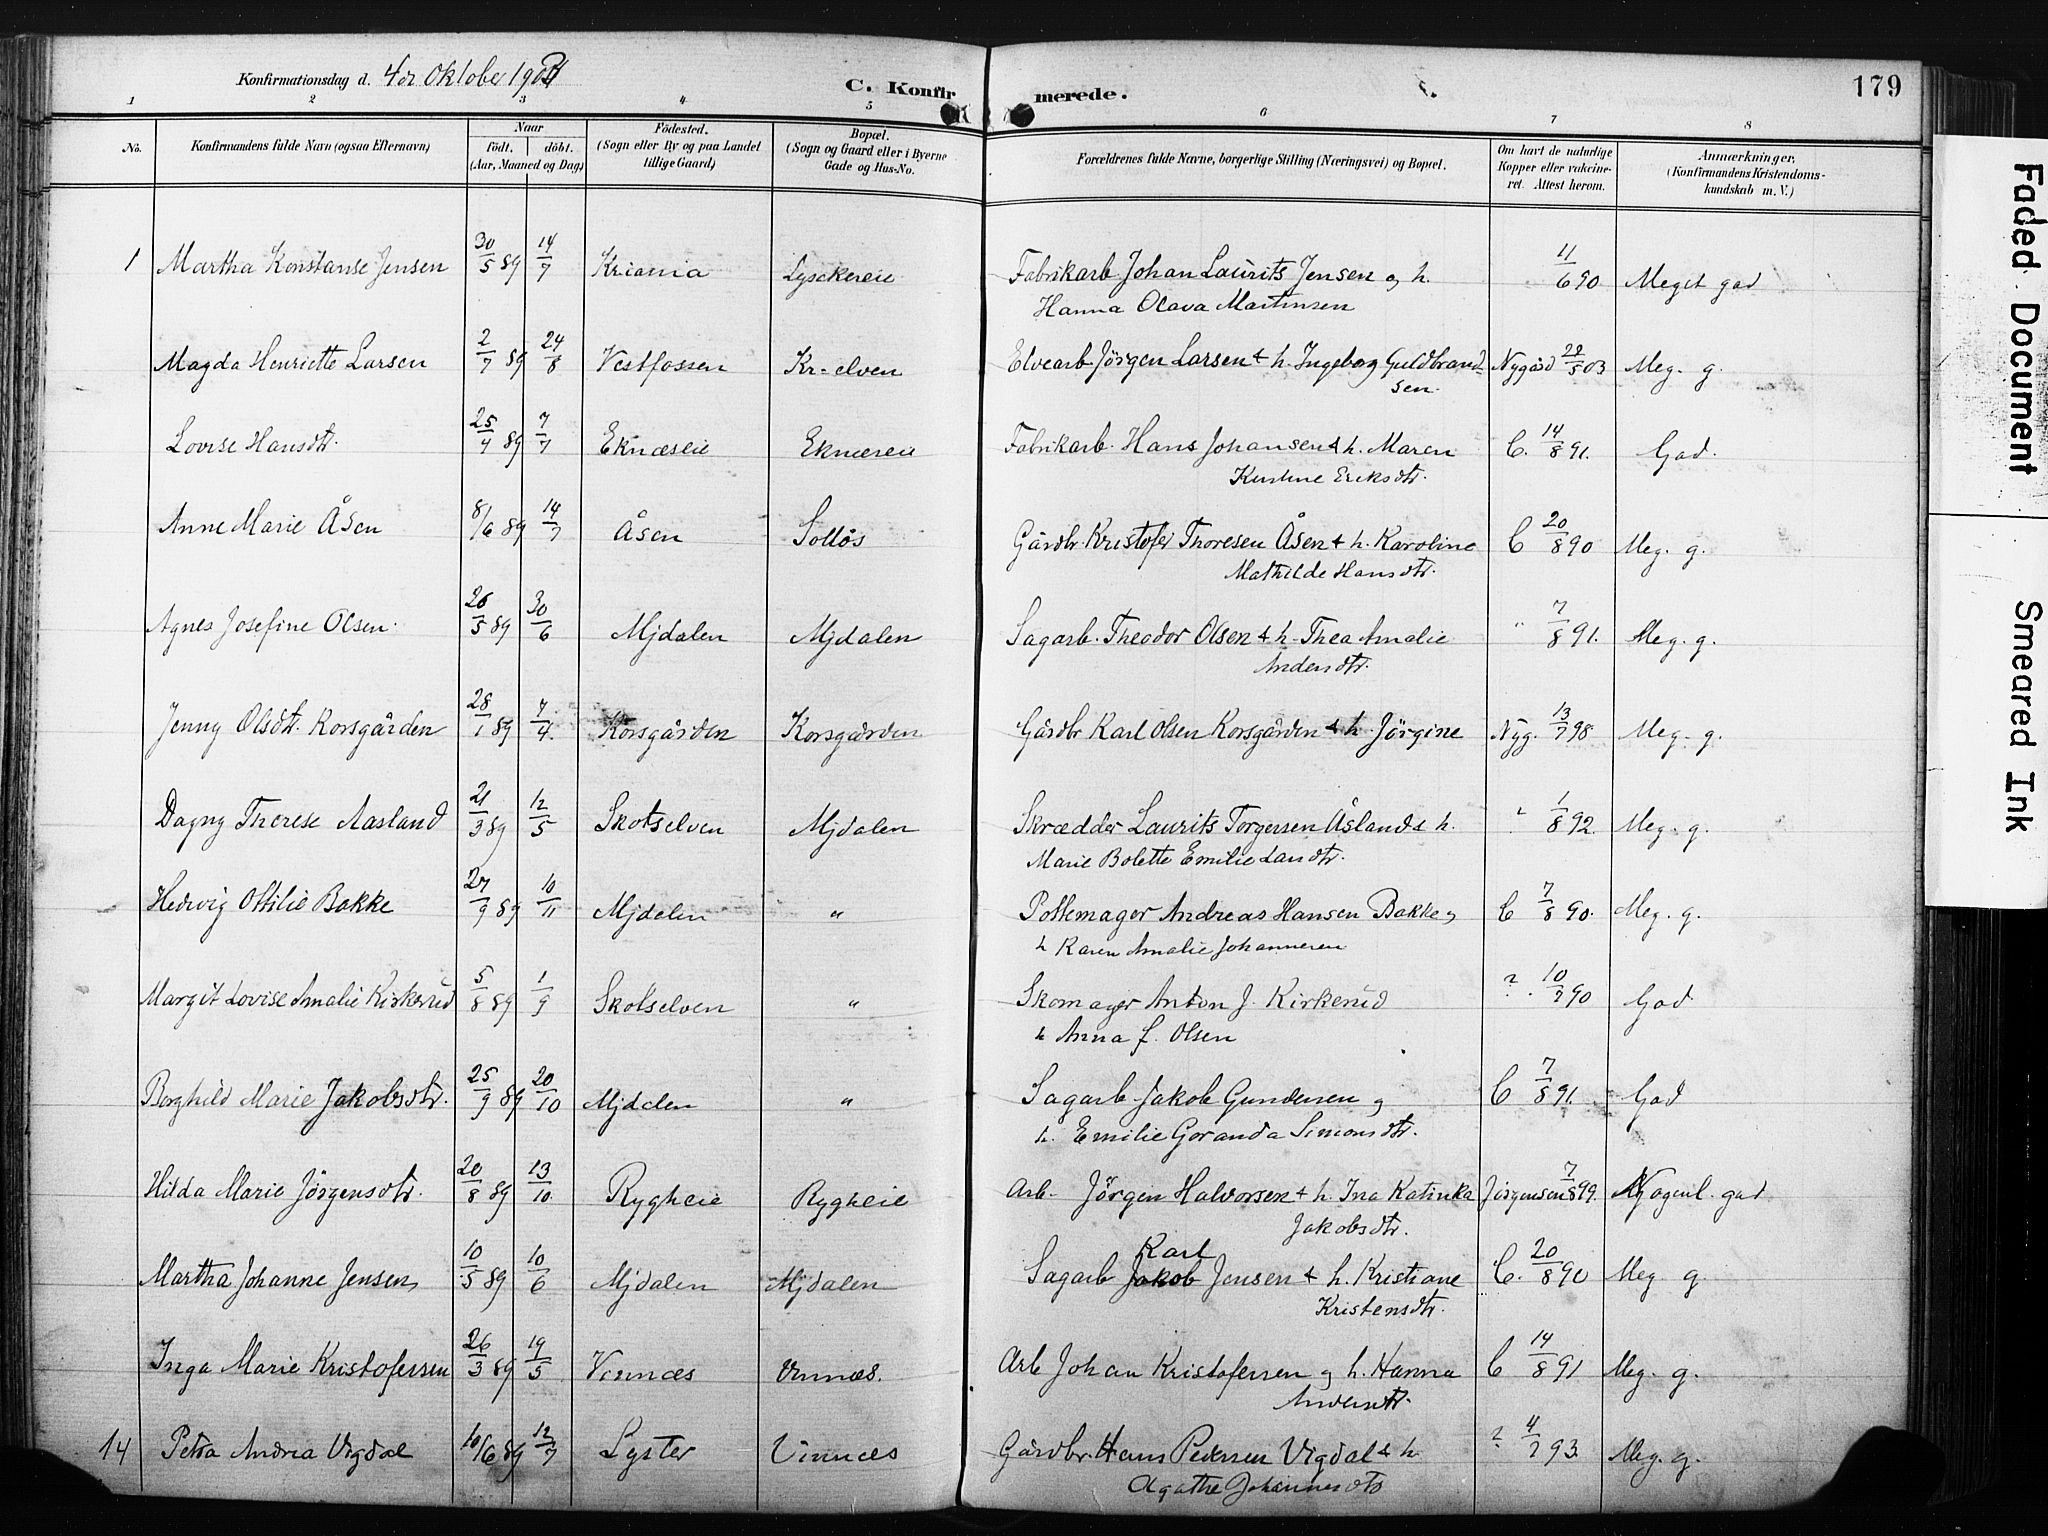 Konfirmationsdag d. 4de Oktober
C. Konfirmerede.
179
1 2 3 4 5 6 7 8
No.
Konfirmandens fulde Navn (ogsaa Efternavn)
Naar
født. døbt.
(Aar, Maaned og Dag)
Fødested.
(Sogn eller By og paa Landet
tillige Gaard)
Bopæl.
(Sogn og Gaard eller i Byerne
Gade og Hus-No.
Forældrenes fulde Navne, borgerlige Stilling (Næringsvei) og Bopæl.
Om havt de naturlige
Kopper eller vakcine-
ret. Attest herom.
Anmærkninger.
(Konfirmandens Kristendoms-
kundskab m. V.)
1 Martha Konstanse Jensen 30/5 89 14/7 Kriania Fabrikarb. Johan Laurits Jensen og h. 11/6 90 Meget god
Hanna Olava Martinsen
Magda Henriette Larsen 2/7 89 24/8 Vestfossen Kr-elven Elvearb Jörgen Larsen & h. Ingeborg Guldbrand- Nygård 29/5 03 Meg. g.
sen.
Lovise Hansdtr. 25/4 89 7/7 Eknæseie Eknæseie Fabrikarb. Hans Johansen & h. Maren C. 14/8 91. God.
Kirstine Eriksdtr.
Anne Marie Åsen 8/6 89 14/7 Åsen Solløs Gårdbr. Kristofer Thoresen Åsen & h. Karoline C 20/8 90 Meg. g.
Mathilde Hansdtr.
Agnes Josefine Olsen. 26/5 89 30/6 Mjdalen Mjdalen Sagarb. Theodor Olsen & h. Thea Amalie " 7/8 91. Meg. g.
Andersdtr.
Jenny Olsdtr. Korsgården 28/1 89 7/4. Korsgården Korsgården Gårdbr Karl Olsen Korsgården & h. Jørgine Nyg. 13/7 98. Meg. g.
Dagny Therese Aasland 21/3 89 12/5 Skotselven Mjdalen Skrædder Laurits Torgersen Åsland & h. ? 1/8 92. Meg. g.
Marie Bolette Emilie Larsdtr.
Hedvig Ottilie Bakke 27/9 89 10/11 Mjdalen " Pottemager Andreas Hansen Bakke og C 7/8 90. Meg. g.
h Karen Amalie Johannesen
Margit Lovise Amalie Kirkerud 5/8 89 1/9 Skotselven " Skomager Anton J. Kirkerud ? 10/7 90 God
h Anna f. Olsen
Borghild Marie Jakobsdtr. 25/9 89 20/10 Mjdalen " Sagarb. Jakob Gundersen og C 7/8 91. God
h. Emilie Goranda Simonsdtr.
Hilda Marie Jörgensdtr. 20/8 89 13/10 Rygheie Rygheie Arb. Jörgen Halvorsen & h. Ina Katinka Jörgensen 7/8 99. Nogenl. god
Jakobsdtr.
Karl
Martha Johanne Jensen 10/5 89 10/6 Mjdalen Mjdalen Sagarb Jakob Jensen & h. Kristiane C. 20/8 90 Meg g.
Kristensdtr.
Inga Marie Kristofersen 26/3 89 19/5 Vinnæs Vinnæs. Arb Johan Kristofersen og h. Hanna C 14/8 91 Meg. g.
Andersdtr.
14 Petra Andrea Vigdal 10/6 89 12/7 Lyster Vinnæs Gårdbr. Hans Pedersen Vigdal & h ? 4/7 93. Meg. g.
Agathe Johannesdtr
Faded Document
Smeared Ink